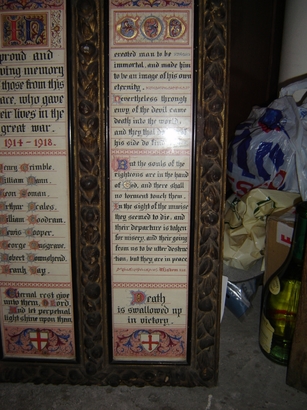 proud and
ving memory
those from this
ace, who gave
eir lives in the
great war.
1914-1918.
Henry Trimble.
William
Leon
Arthur Scales.
William Goodram.
Lewis Cooper.
George Musgrave.
Robert
Frank Day.
Eternal rest give
unto them, O Lord
And let perpetual
light shine upon them
created man to be
immortal, and made him
to be an image of his own
eternity.
Nevertheless through
envy of the devil came
death into the world,
and they that do hold of
his side do find it
But the souls of the
righteous are in the hand
of God, and there shall
no torment touch them.
In the sight of the unwise
they seemed to die, and
their departure is taken
for misery, and their going
from us to be utter destruc-
tion, but they are in peace
Wisdom
Death
is swallowed up
in victory.